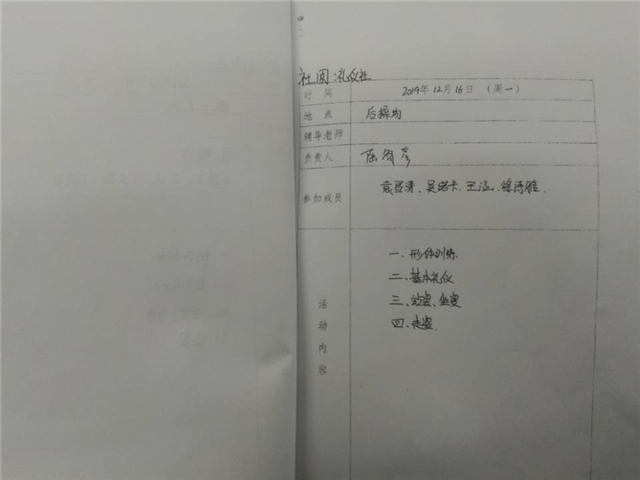 社团:礼仪社
时间 2019年12月16日（周一）
地点 后操场
辅导老师
负责人
参加成员 吴诺卡、王涵、
活动内容
一、形体训练
二、基本礼仪
三、站姿、坐姿
四、走姿